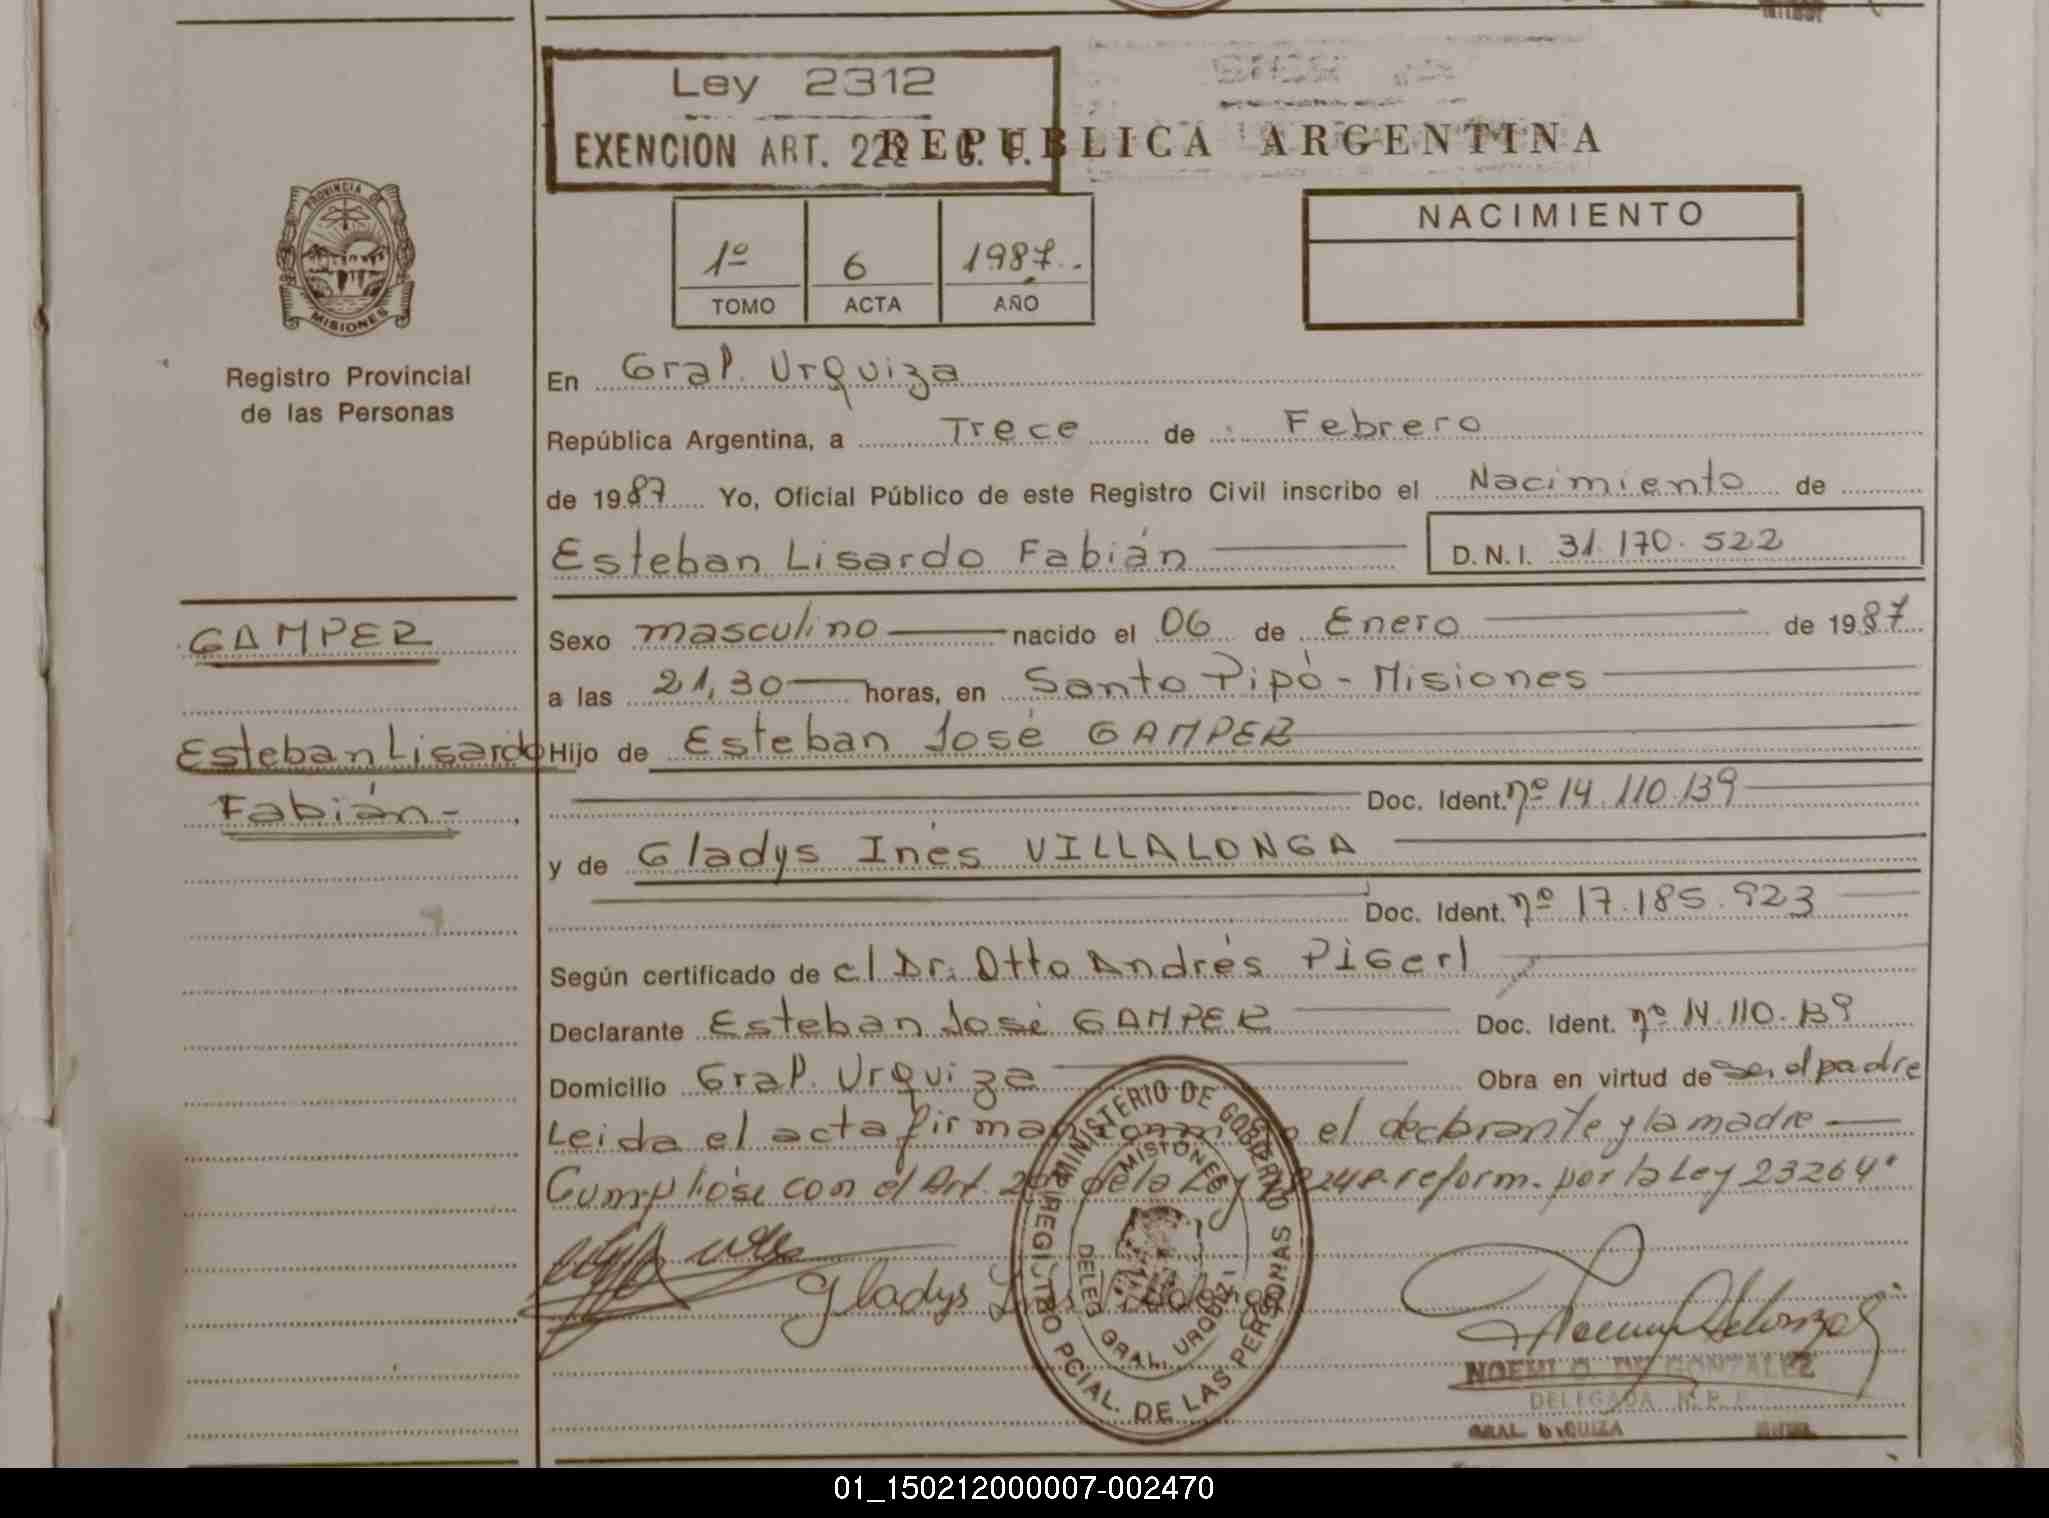 Ley 2312
EXENCION ART. 222 C. F.
REPUBLICA ARGENTINA
PROVINCIA DE
MISIONES
Registro Provincial
de las Personas
1º 6 1987
TOMO ACTA AÑO
NACIMIENTO
En Gral. Urquiza
República Argentina, a Trece de Febrero
de 1987 Yo, Oficial Público de este Registro Civil inscribo el Nacimiento de
Esteban Lisardo Fabián D.N.I. 31.170.522
GAMPER
Esteban Lisardo
Fabián-
Sexo masculino nacido el 06 de Enero de 1987
a las 21,30 horas, en Santo Pipó - Misiones
Hijo de Esteban José GAMPER
Doc. Ident. nº 14.110.139
y de Gladys Inés VILLALONGA
Doc. Ident. nº 17.185.923
Según certificado de c/ Dr. Otto Andrés PiGerl
Declarante Esteban José GAMPER Doc. Ident. nº 14.110.139
Domicilio Gral. Urquiza Obra en virtud de ser el padre
Leida el acta firman conmigo el declarante y la madre
Cumplióse con el Art. de la Ley reform. por la Ley 23264
Gladys Inés
MINISTERIO DE GOBIERNO
MISIONES
REGISTRO PCIAL. DE LAS PERSONAS
DELEG. GRAL. URQUIZA
NOEMI O. DE GONZALEZ
DELEGADA R.P.P.
GRAL. URQUIZA
01_150212000007-002470